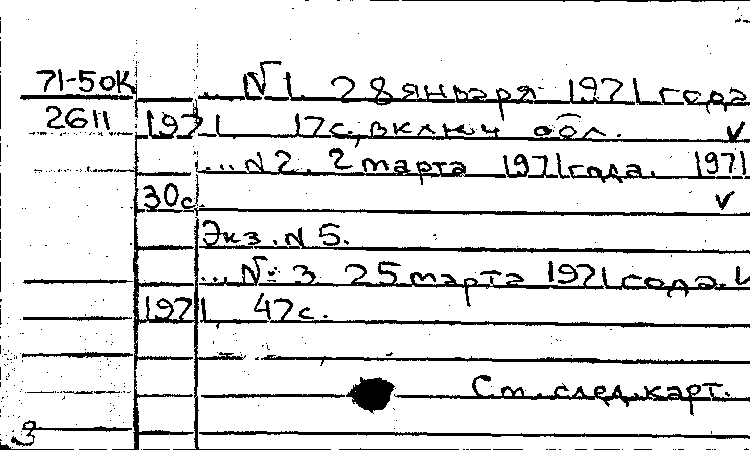 71-50К
... №1. 28 января 1971 года
2611 1971 17с, включ обл. ✓
... №2. 2 марта 1971 года. 1971
30с. ✓
Экз. №5.
... №3 25 марта 1971 года.
1971 47с.
См. след. карт.
3